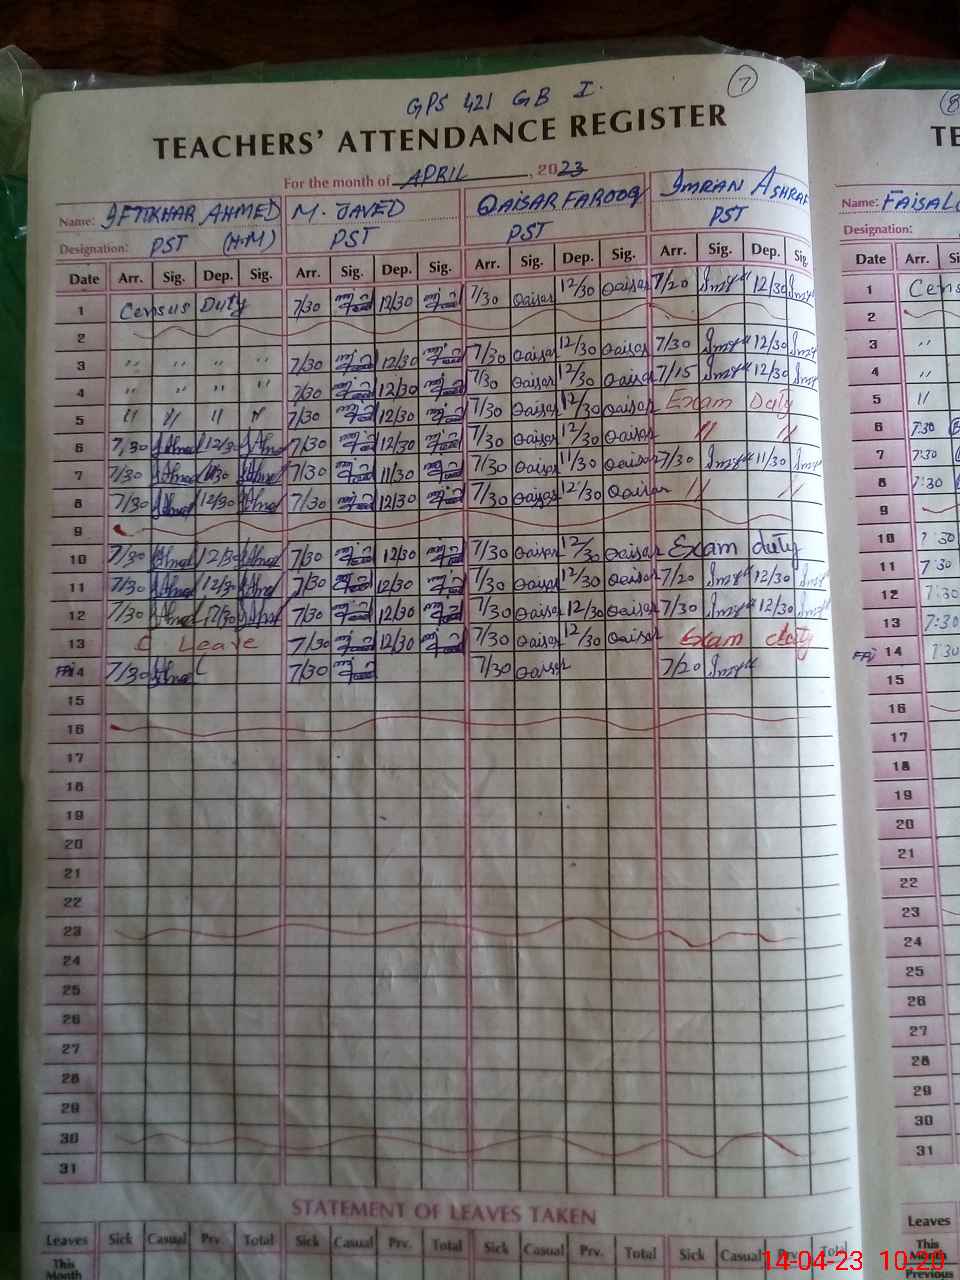 7
GPS 421 GB I.
TEACHERS' ATTENDANCE REGISTER
For the month of APRIL, 2023
Name: IFTIKHAR AHMED M. JAVED QAISAR FAROOQ IMRAN ASHRAF
Designation: PST (H.M) PST PST PST
Date Arr. Sig. Dep. Sig. Arr. Sig. Dep. Sig. Arr. Sig. Dep. Sig. Arr. Sig. Dep. Sig.
1 Census Duty 7/30 12/30 7/30 Qaisar 12/30 Qaisar 7/20 12/30
2
3 " " " " 7/30 12/30 7/30 Qaisar 12/30 Qaisar 7/30 12/30
4 " " " " 7/30 12/30 7/30 Qaisar 12/30 Qaisar 7/15 12/30
5 " " " " 7/30 12/30 7/30 Qaisar 12/30 Qaisar Exam Duty
6 7/30 Ahmed 12/30 Ahmed 7/30 12/30 7/30 Qaisar 12/30 Qaisar " "
7 7/30 Ahmed 11/30 Ahmed 7/30 11/30 7/30 Qaisar 11/30 Qaisar 7/30 11/30
8 7/30 Ahmed 12/30 Ahmed 7/30 12/30 7/30 Qaisar 12/30 Qaisar " "
9
10 7/30 Ahmed 12/30 Ahmed 7/30 12/30 7/30 Qaisar 12/30 Qaisar Exam duty
11 7/30 Ahmed 12/30 Ahmed 7/30 12/30 7/30 Qaisar 12/30 Qaisar 7/20 12/30
12 7/30 Ahmed 12/30 Ahmed 7/30 12/30 7/30 Qaisar 12/30 Qaisar 7/30 12/30
13 C Leave 7/30 12/30 7/30 Qaisar 12/30 Qaisar Exam duty
Fri 14 7/30 Ahmed 7/30 7/30 Qaisar 7/20
15
16
17
18
19
20
21
22
23
24
25
26
27
28
29
30
31
STATEMENT OF LEAVES TAKEN
Leaves Sick Casual Prv. Total Sick Casual Prv. Total Sick Casual Prv. Total Sick Casual Prv. Total
This Month
(8
TE
Name: FAISAL
Designation:
Date Arr. Si
1 Cens
2
3 "
4 "
5 "
6 7:30
7 7:30
8 7:30
9
10 7:30
11 7:30
12 7:30
13 7:30
Fri 14 7:30
15
16
17
18
19
20
21
22
23
24
25
26
27
28
29
30
31
Leaves
This Month
Previous
14-04-23 10:20